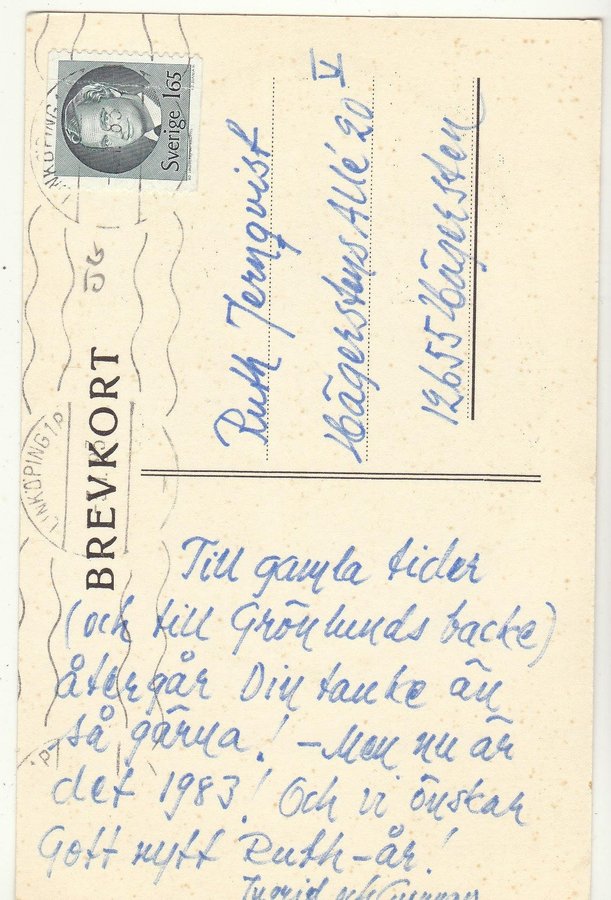 Sverige 165
LINKÖPING 1
ÖG
BREVKORT
LINKÖPING 1
Ruth Jernqvist
Hägerstens Allé 20 V
12655 Hägersten
Till gamla tider
(och till Grönlunds backe)
återgår Din tanke än
så gärna! – Men nu är
det 1983! Och vi önskar
Gott nytt Ruth-år!
Ingrid och Gunnar